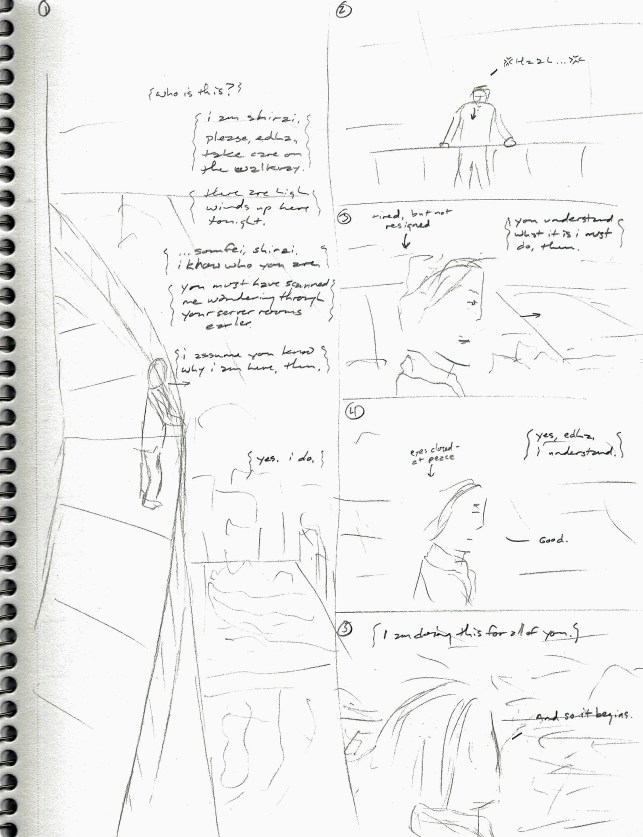 1
{who is this?}
{i am shirzi.
please, edhz,
take care on
the walkway.}
{there are high
winds up here
tonight.}
{...somfei, shirzi.
i know who you are.}
{you must have scanned
me wandering through
your server rooms
earlier.}
{i assume you know
why i am here, then.}
{yes. i do.}
2
3
tired, but not
resigned
{you understand
what it is i must
do, then.}
4
eyes closed -
at peace
{yes, edhz,
i understand.}
Good.
5
{I am doing this for all of you.}
And so it begins.